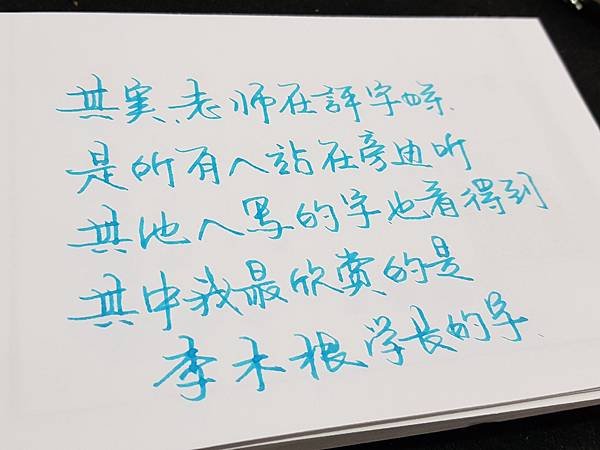 其实,老师在評字时,
是所有人站在旁边听
其他人写的字也看得到
其中我最欣赏的是
李木根学长的字.